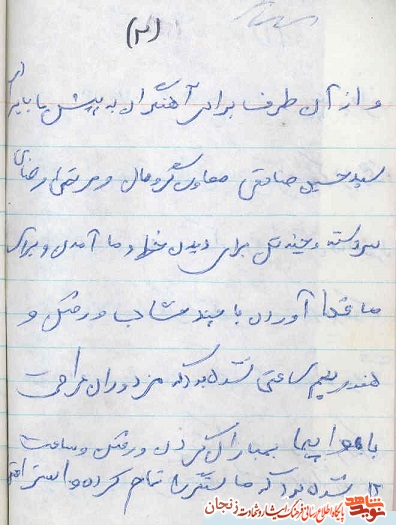 (۲)
و از آن طرف برادر آهنگران به پیش ما با برادر
سید حسین صادقی معاون گروهان و مرتضی رضائی
سر دسته و چند تن برای دیدن خط و ما آمدن و برای
ما غذا آوردن با چند رفتن و
هنوز نیم ساعتی نشده بود که مزدوران عراقی
با هواپیما بمباران کردن و رفتن و ساعت
۱۲ شده بود که ما سنگر را تمام کرده و استراحت
نوید شاهد
پایگاه اطلاع رسانی فرهنگ ایثار و شهادت زنجان